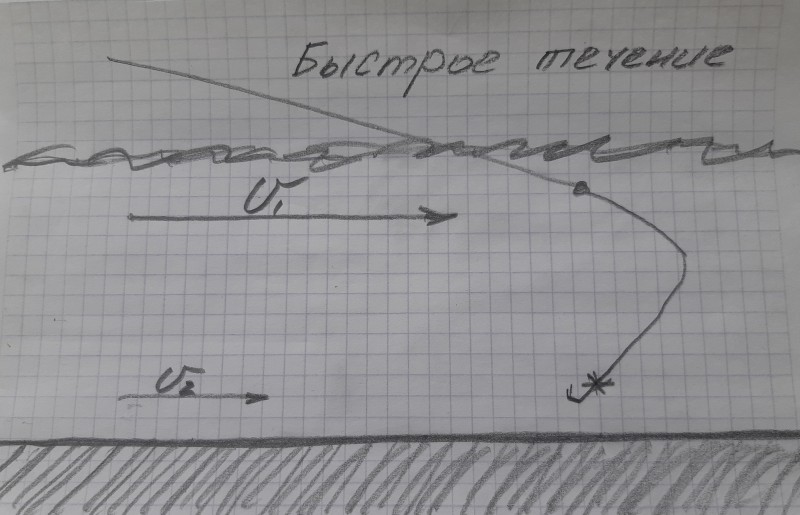 Быстрое течение
υ₁
υ₂